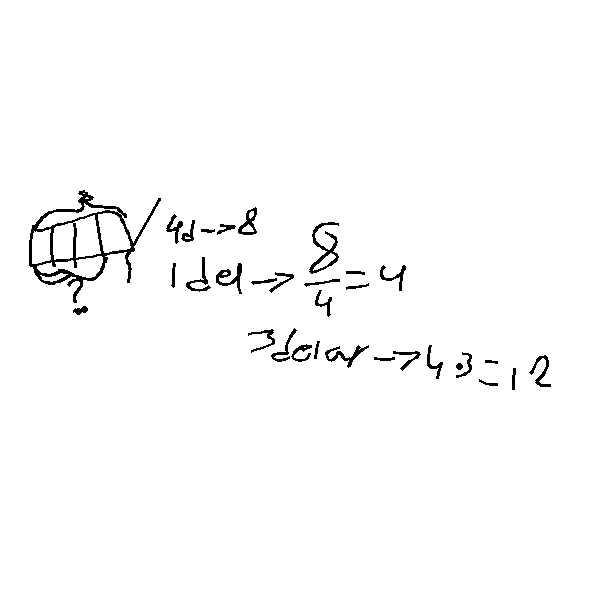 ?
4d->8
1 del -> 8/4 = 4
3 delar -> 4·3 = 12